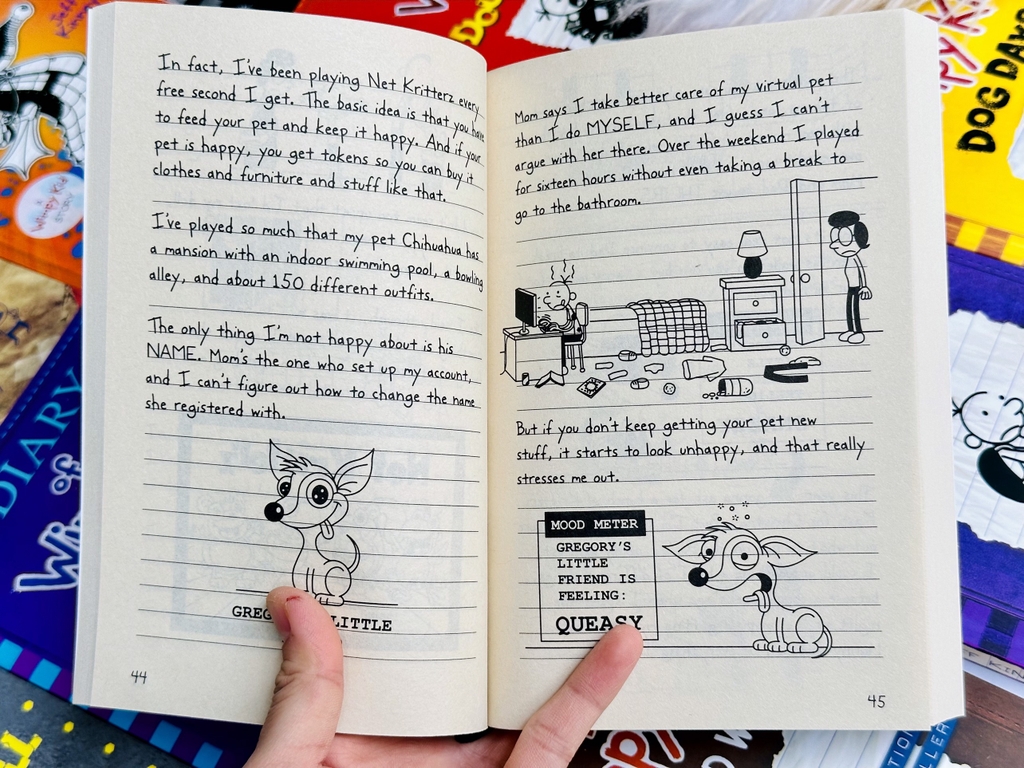 In fact, I've been playing Net Kritterz every
free second I get. The basic idea is that you have
to feed your pet and keep it happy. And if your
pet is happy, you get tokens so you can buy it
clothes and furniture and stuff like that.
I've played so much that my pet Chihuahua has
a mansion with an indoor swimming pool, a bowling
alley, and about 150 different outfits.
The only thing I'm not happy about is his
NAME. Mom's the one who set up my account,
and I can't figure out how to change the name
she registered with.
LITTLE
44
Mom says I take better care of my virtual pet
than I do MYSELF, and I guess I can't
argue with her there. Over the weekend I played
for sixteen hours without even taking a break to
go to the bathroom.
But if you don't keep getting your pet new
stuff, it starts to look unhappy, and that really
stresses me out.
MOOD METER
GREGORY'S
LITTLE
FRIEND IS
FEELING:
QUEASY
45
DOG DAYS
DIARY
of
a
Wimpy Kid